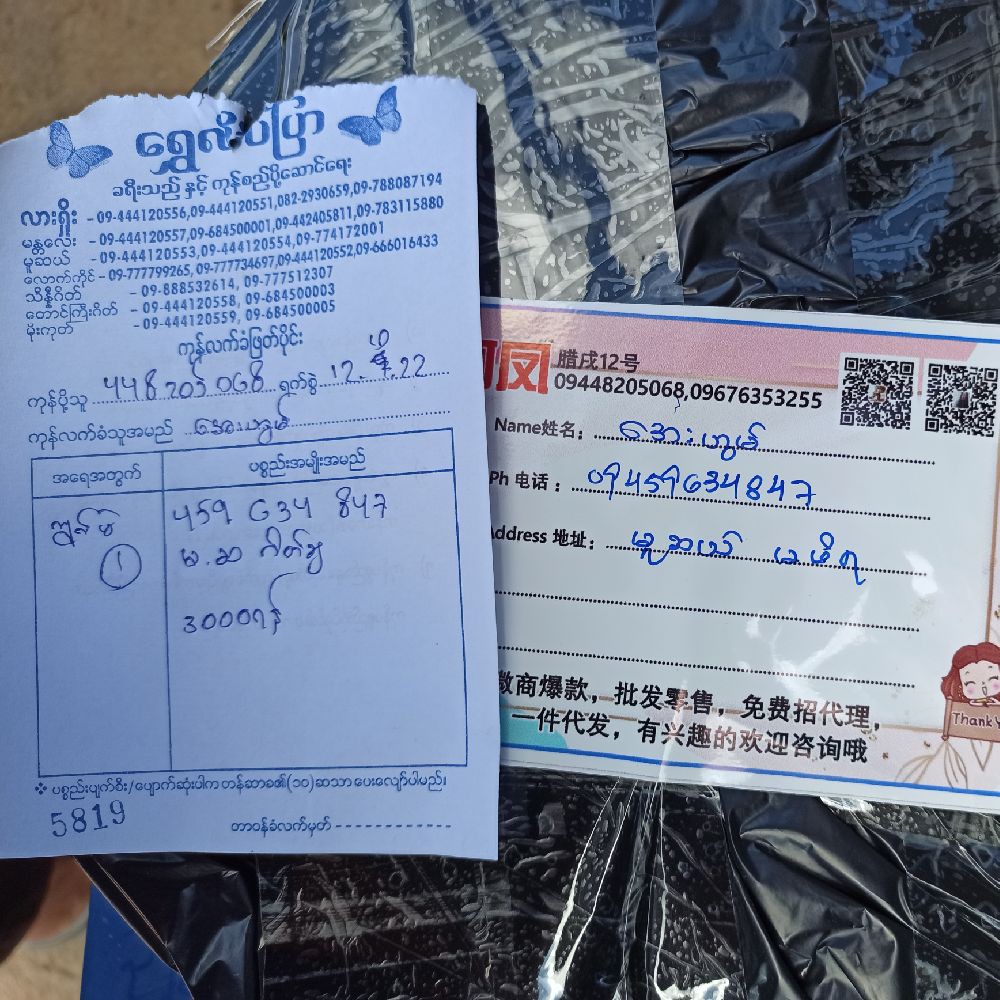 ရွှေလိပ်ပြာ
ခရီးသည် နှင့် ကုန်စည်ပို့ဆောင်ရေး
လားရှိုး - 09-444120556,09-444120551,082-2930659,09-788087194
မန္တလေး - 09-444120557,09-684500001,09-442405811,09-783115880
မူဆယ် - 09-444120553,09-444120554,09-774172001
လောက်ကိုင် - 09-777799265, 09-777734697,09-444120552,09-666016433
သိန္နီဂိတ် - 09-888532614, 09-777512307
တောင်ကြီးဂိတ် - 09-444120558, 09-684500003
မိုးကုတ် - 09-444120559, 09-684500005
ကုန်လက်ခံဖြတ်ပိုင်း
ကုန်ပို့သူ ၄၄၈ ၂၀၅ ၀၆၈ ရက်စွဲ 12.22
ကုန်လက်ခံသူအမည် အေးဟွမ်
အရေအတွက် ပစ္စည်းအမျိုးအမည်
၄၅၉ ၆၃၄ ၈၄၇
၁ မ.ဆ ဂိတ်ချ
3000ကျန်
❖ ပစ္စည်းပျက်စီး/ပျောက်ဆုံးပါက တန်ဆာခ၏(၁၀)ဆသာ ပေးလျော်ပါမည်၊
5819 တာဝန်ခံလက်မှတ် ------------
凤 腊戌12号
09448205068,09676353255
Name姓名： အေးဟွမ်
Ph 电话： 09459634847
Address 地址： မူဆယ်
微商爆款，批发零售，免费招代理，
一件代发，有兴趣的欢迎咨询哦
Thank